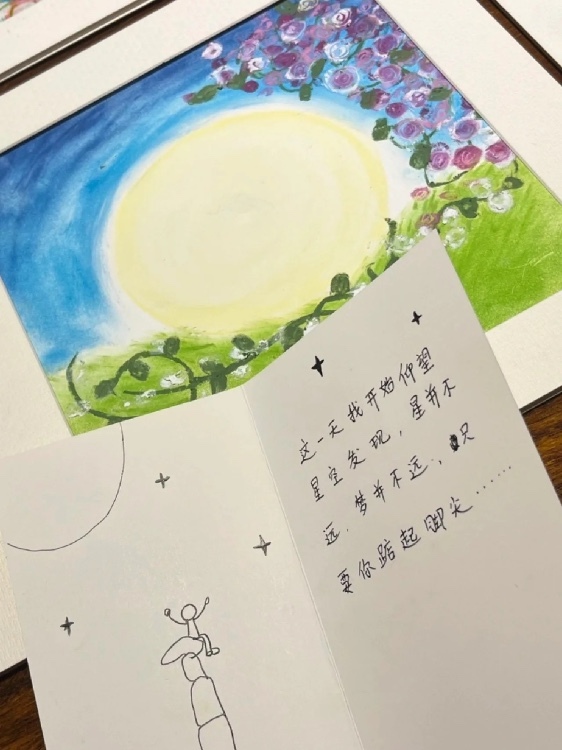 这一天我开始仰望
星空发现，星并不
远，梦并不远，只
要你踮起脚尖……